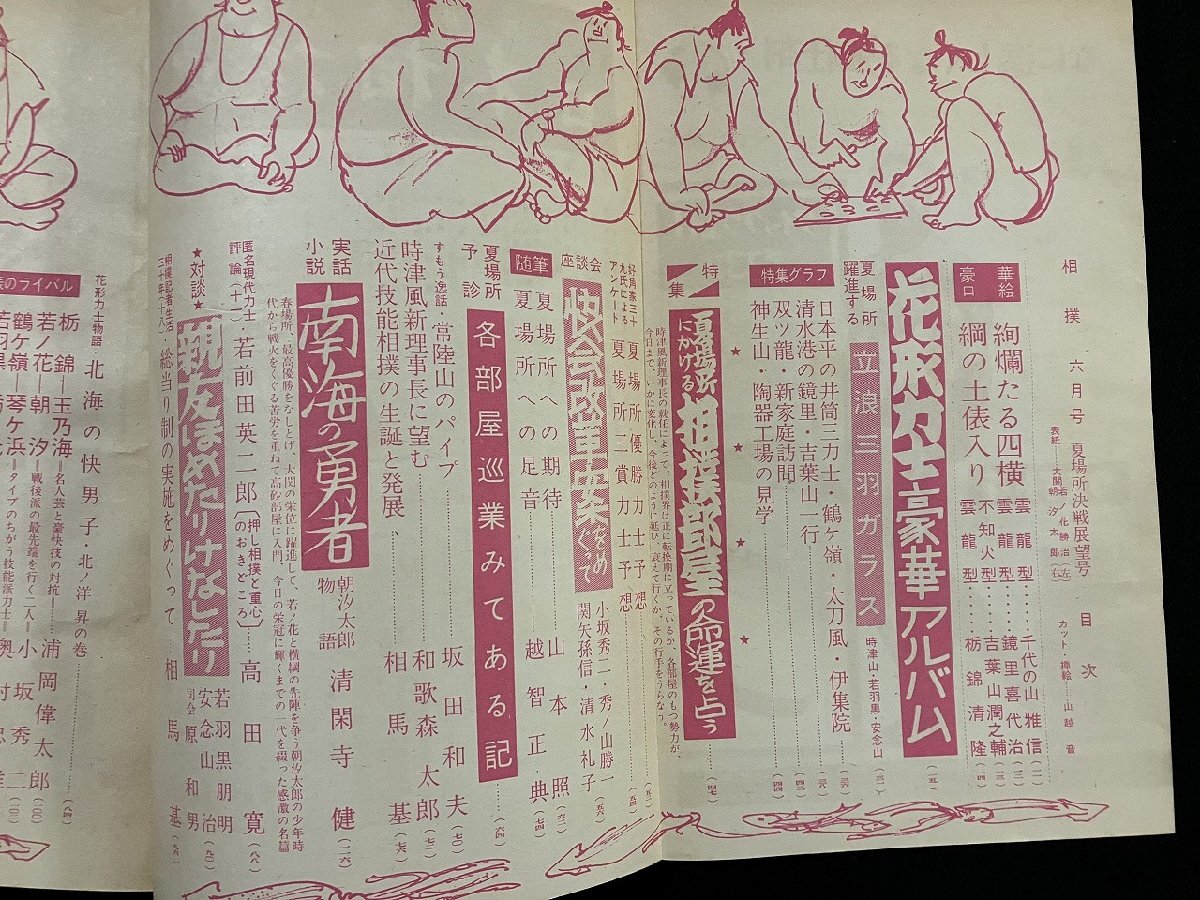 相撲 六月号 夏場所決戦展望号 目次
カット・挿絵……山越音
華絵
豪口
絢爛たる四横綱の土俵入り
雲龍型……千代の山雅信
雲龍型……鏡里喜代治
不知火型……吉葉山潤之輔
雲龍型……栃錦清隆
花形力士豪華アルバム
夏場所
躍進する
立浪三羽ガラス
時津山・若羽黒・安念山
特集グラフ
日本平の井筒三力士・鶴ケ嶺・大刀風・伊集院
清水港の鏡里・吉葉山一行
双ツ龍・新家庭訪問
神生山・陶器工場の見学
特集
夏場所にかける
相撲部屋の命運を占う
時津風新理事長の就任によって、相撲界は正に転換期に立っているが、各部屋のもつ勢力が、
今日まで、いかに変化し、今後どのように延び、衰えて行くか、その行手をうらなう。
好角家三十九氏によるアンケート
夏場所優勝力士予想
夏場所三賞力士予想
座談会
協会改革案をめぐって
小坂秀二・秀ノ山勝一
関矢孫信・清水礼子
随筆
夏場所への期待……山本照
夏場所への足音……越智正典
夏場所予診
各部屋巡業みてある記
すもう逸話・常陸山のパイプ……坂田和夫
時津風新理事長に望む……和歌森太郎
近代技能相撲の生誕と発展……相馬基
実話小説
南海の勇者
朝汐太郎物語
清閑寺健
春場所、最高優勝をなしとげ、大関の栄位に躍進して、若ノ花と横綱の先陣を争う朝汐太郎の少年時
代から戦火をくぐる苦労を重ねて高砂部屋に入門、今日の栄冠に輝くまでの一代を綴った感激の名篇
匿名現代力士評論(十一)
若前田英二郎〔押し相撲と重心のおきどころ〕……高田寛
★対談★
親友ほめたりけなしたり
若羽黒朋明
安念山治
司会 原和男
相撲記者生活三十年(十八)・総当り制の実施をめぐって……相馬基
花形力士物語 北海の快男子・北ノ洋昇の巻
のライバル
栃錦―玉乃海=名人芸と豪快技の対抗……浦岡偉太郎
若ノ花―朝汐=戦後派の最先端を行く二人……小坂秀二
鶴ケ嶺―琴ケ浜=タイプのちがう技能派力士